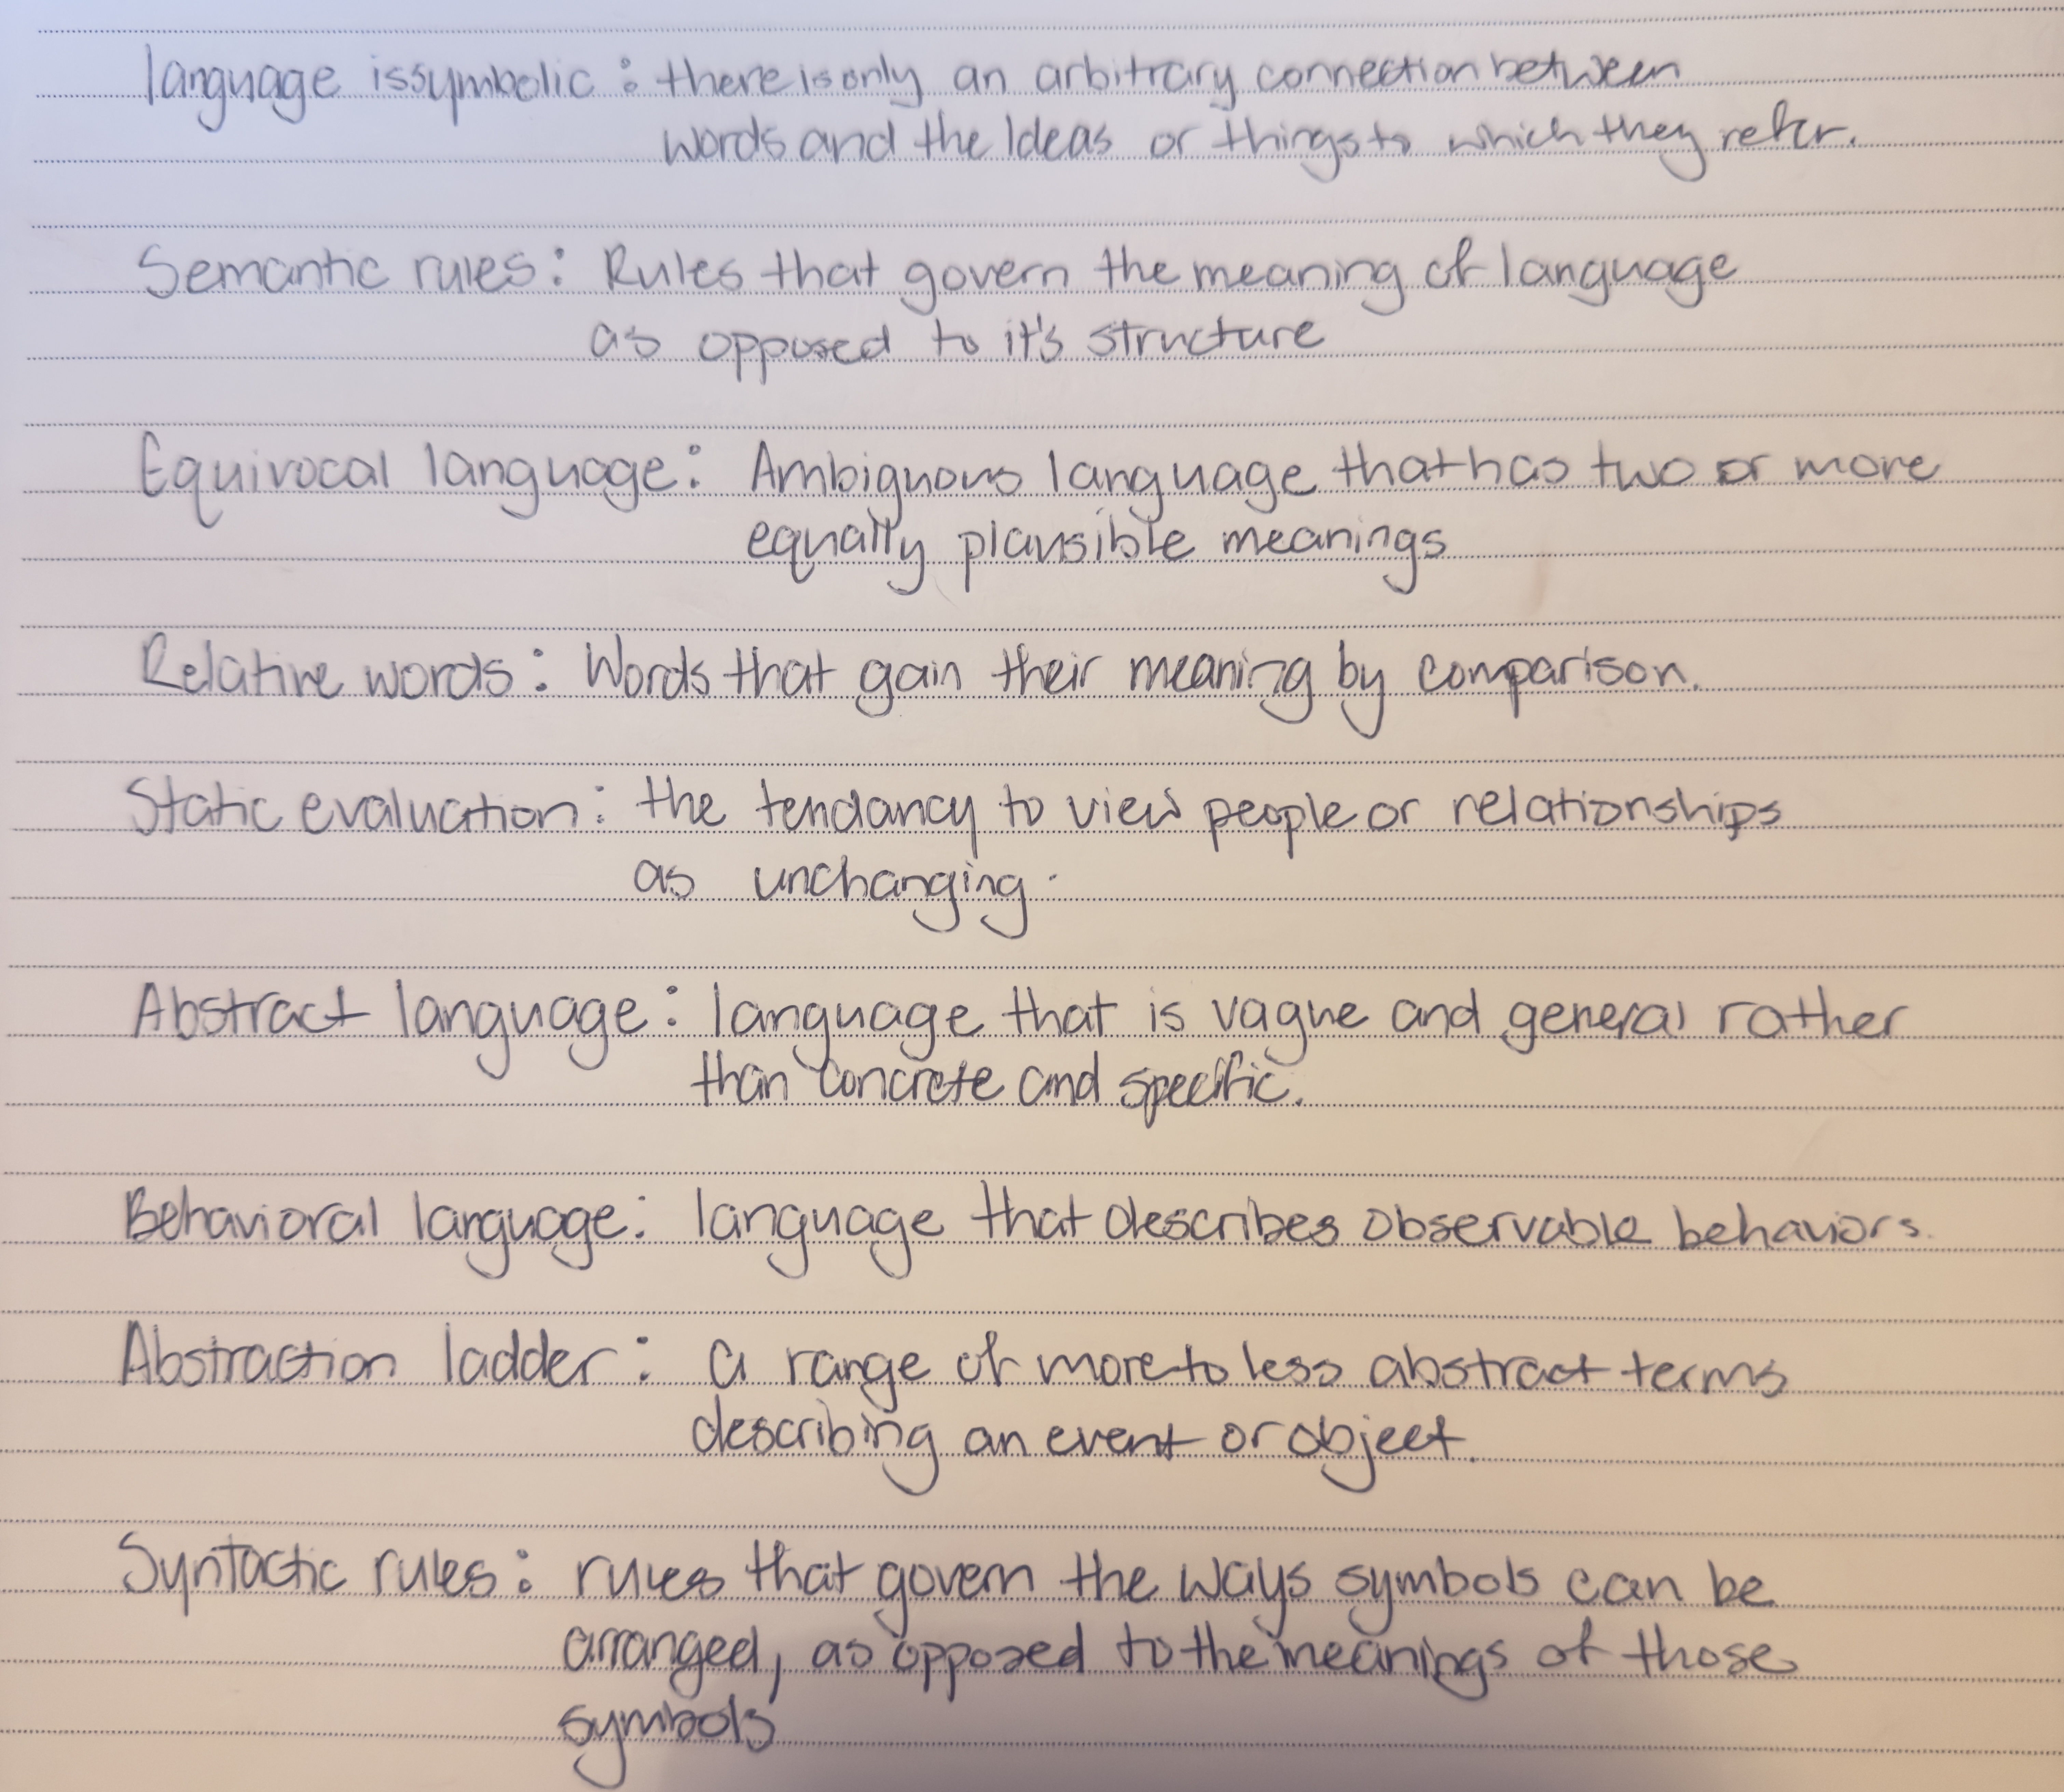 language is symbolic : there is only an arbitrary connection between
words and the Ideas or things to which they refer.
Semantic rules : Rules that govern the meaning of language
as opposed to it's structure
Equivocal language : Ambiguous language that has two or more
equally plausible meanings
Relative words : Words that gain their meaning by comparison.
Static evaluation : the tendancy to view people or relationships
as unchanging.
Abstract language : language that is vague and general rather
than concrete and specific.
Behavioral language : language that describes observable behaviors.
Abstraction ladder : a range of more to less abstract terms
describing an event or object.
Syntactic rules : rules that govern the ways symbols can be
arranged, as opposed to the meanings of those
symbols